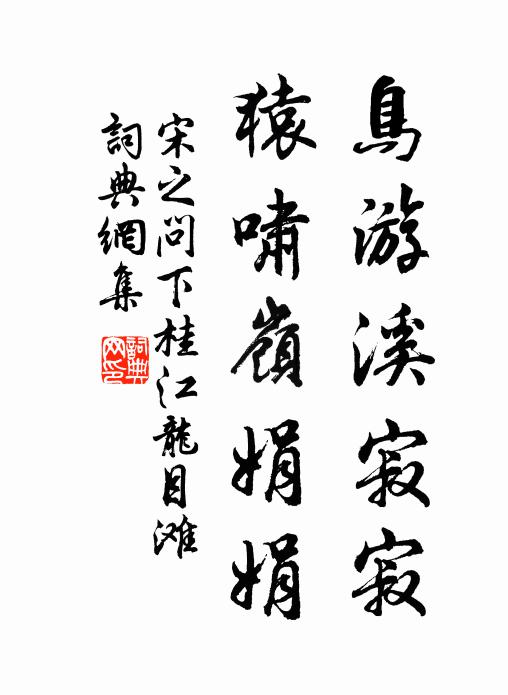 鳥游溪寂寂
猿嘯嶺娟娟
宋之问下桂江龍目滩
詞典網集
詞典
网印